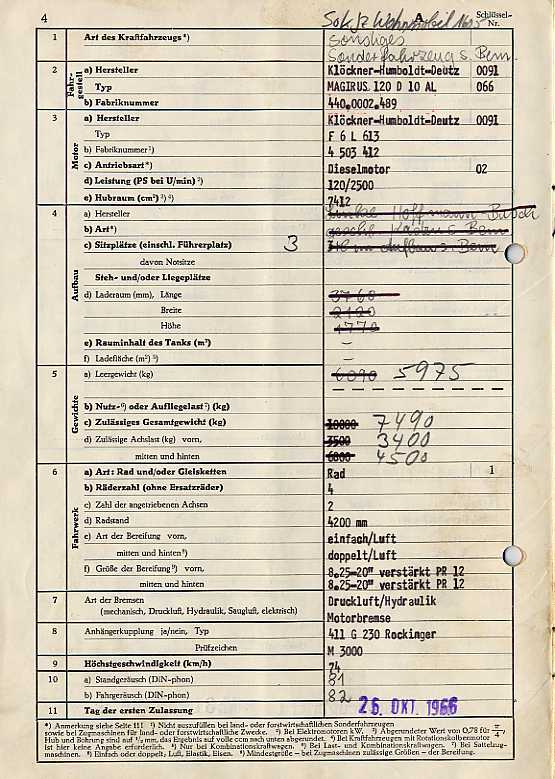 4 So.Kfz Wohnmobil A. Schlüssel-Nr.
1 Art des Kraftfahrzeugs*) Sonstiges
Sonderfahrzeug s. Bem.
2 Fahrgestell a) Hersteller Klöckner-Humboldt-Deutz 0091
Typ MAGIRUS 120 D 10 AL 066
b) Fabriknummer 440.0002.489
3 Motor a) Hersteller Klöckner-Humboldt-Deutz 0091
Typ F 6 L 613
b) Fabriknummer¹) 4 503 412
c) Antriebsart*) Dieselmotor 02
d) Leistung (PS bei U/min) ²) 120/2500
e) Hubraum (cm³) ³) ⁴) 7412
4 Aufbau a) Hersteller Linke Hoffmann Busch
b) Art*) geschl. Kasten s. Bem
c) Sitzplätze (einschl. Führerplatz) 3
davon Notsitze
Steh- und/oder Liegeplätze
d) Laderaum (mm), Länge 3760
Breite 2120
Höhe 1770
e) Rauminhalt des Tanks (m³) –
f) Ladefläche (m²) ⁵) –
5 Gewichte a) Leergewicht (kg) 6090 5975
b) Nutz-⁶) oder Aufliegelast⁷) (kg)
c) Zulässiges Gesamtgewicht (kg) 10000 7490
d) Zulässige Achslast (kg) vorn, 3500 3400
mitten und hinten 6800 4500
6 Fahrwerk a) Art: Rad und/oder Gleisketten Rad 1
b) Räderzahl (ohne Ersatzräder) 4
c) Zahl der angetriebenen Achsen 2
d) Radstand 4200 mm
e) Art der Bereifung vorn, einfach/Luft
mitten und hinten⁸) doppelt/Luft
f) Größe der Bereifung⁹) vorn, 8.25-20" verstärkt PR 12
mitten und hinten 8.25-20" verstärkt PR 12
7 Art der Bremsen Druckluft/Hydraulik
(mechanisch, Druckluft, Hydraulik, Saugluft, elektrisch) Motorbremse
8 Anhängerkupplung ja/nein, Typ 411 G 230 Rockinger
Prüfzeichen M 3000
9 Höchstgeschwindigkeit (km/h) 74
10 a) Standgeräusch (DIN-phon) 81
b) Fahrgeräusch (DIN-phon) 82
11 Tag der ersten Zulassung 26. OKT. 1966
*) Anmerkung siehe Seite 11! ¹) Nicht auszufüllen bei land- oder forstwirtschaftlichen Sonderfahrzeugen
sowie bei Zugmaschinen für land- oder forstwirtschaftliche Zwecke. ²) Bei Elektromotoren kW. ³) Abgerundeter Wert von 0,78 für π/4,
Hub und Bohrung sind auf ½ mm, das Ergebnis auf volle ccm nach unten abgerundet. ⁴) Bei Kraftfahrzeugen mit Rotationskolbenmotor
ist hier keine Angabe erforderlich. ⁵) Nur bei Kombinationskraftwagen. ⁶) Bei Last- und Kombinationskraftwagen. ⁷) Bei Sattelzug-
maschinen. ⁸) Einfach oder doppelt; Luft, Elastik, Eisen. ⁹) Mindestgröße – bei Zugmaschinen zulässige Größen – der Bereifung.